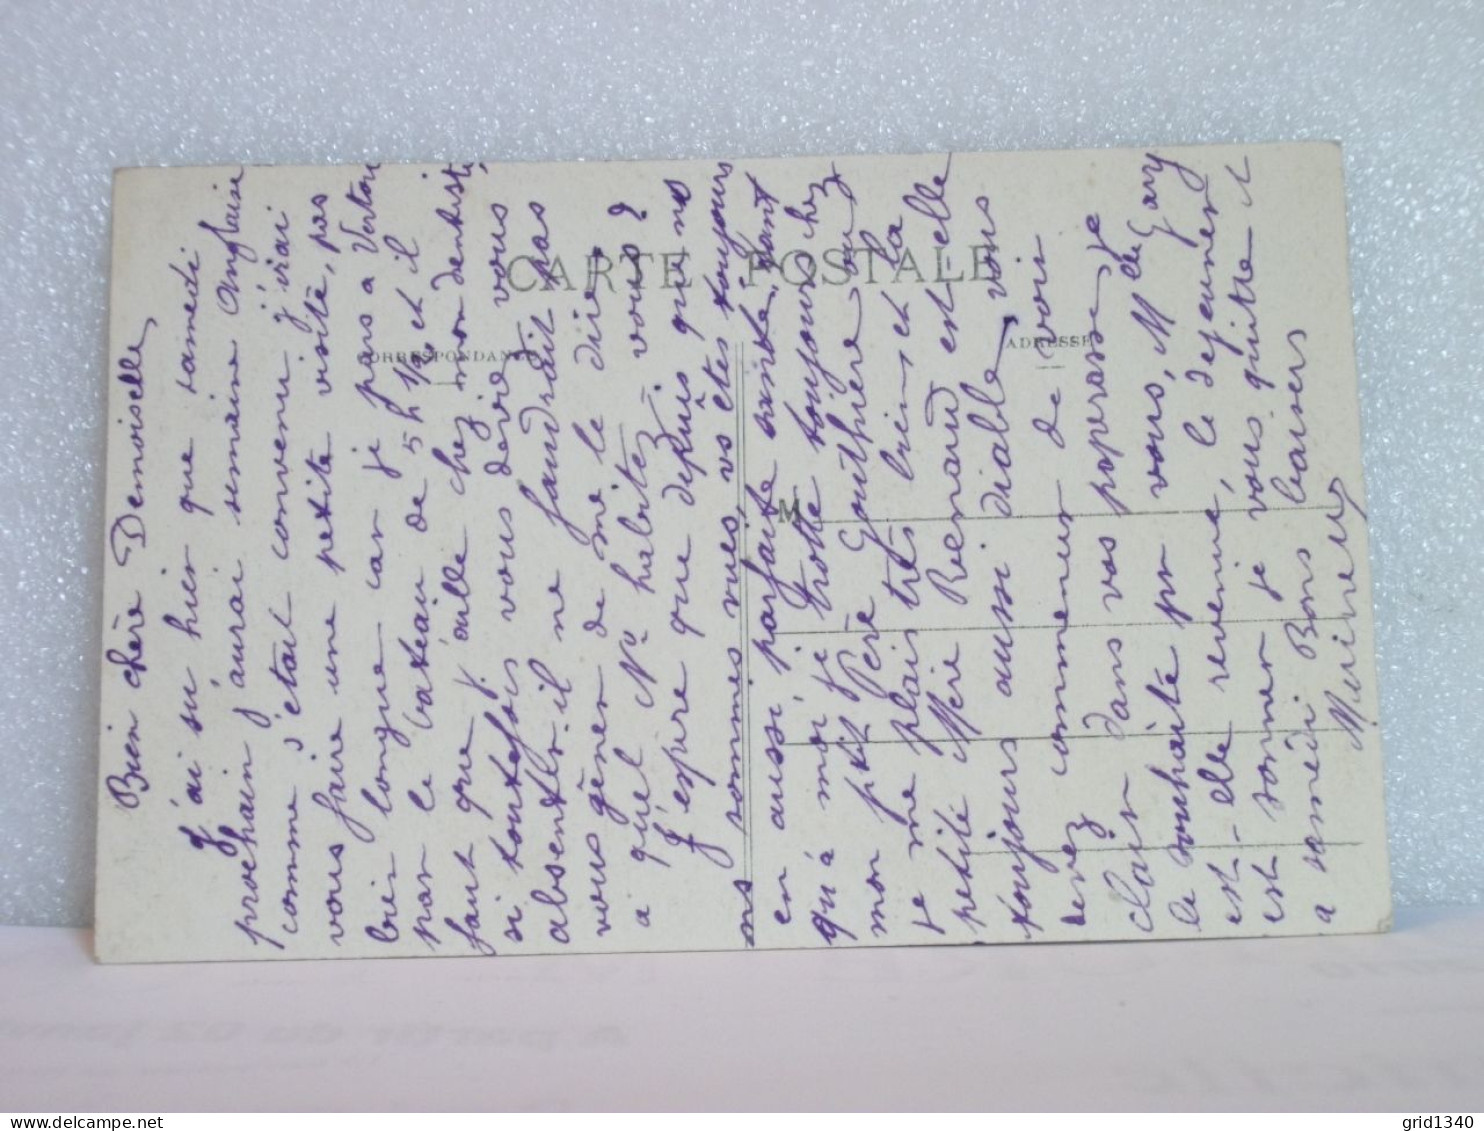 Bien chère Demoiselle,
J'ai su hier que samedi
prochain j'aurai semaine Anglaise
comme s'était convenu j'irai
vous faire une petite visite, pas
bien longue car je pars a Vertou
par le bateau de 5h 1/2 et il
faut que j'aille chez mon dentiste,
si toutefois vous deviez vous
absenter il ne faudrait pas
vous gêner de me le dire,
a quel No habitez-vous?
J'espère que depuis que ns
ns sommes vues, vs êtes toujours
en aussi parfaite santé, tant
qu'à moi je trotte toujours chez
mon ptit Père Gouthière où
je me plais très bien, et la
petite Mère Renaud est elle
toujours aussi diable vous
devez commencer de voir
clair dans vos paperasses je
le souhaite pr vous, Melle Gary
est-elle revenue, le dejeuner
est sonner je vous quitte
a samedi Bons baisers
CARTE POSTALE
CORRESPONDANCE
ADRESSE
M
grid1340